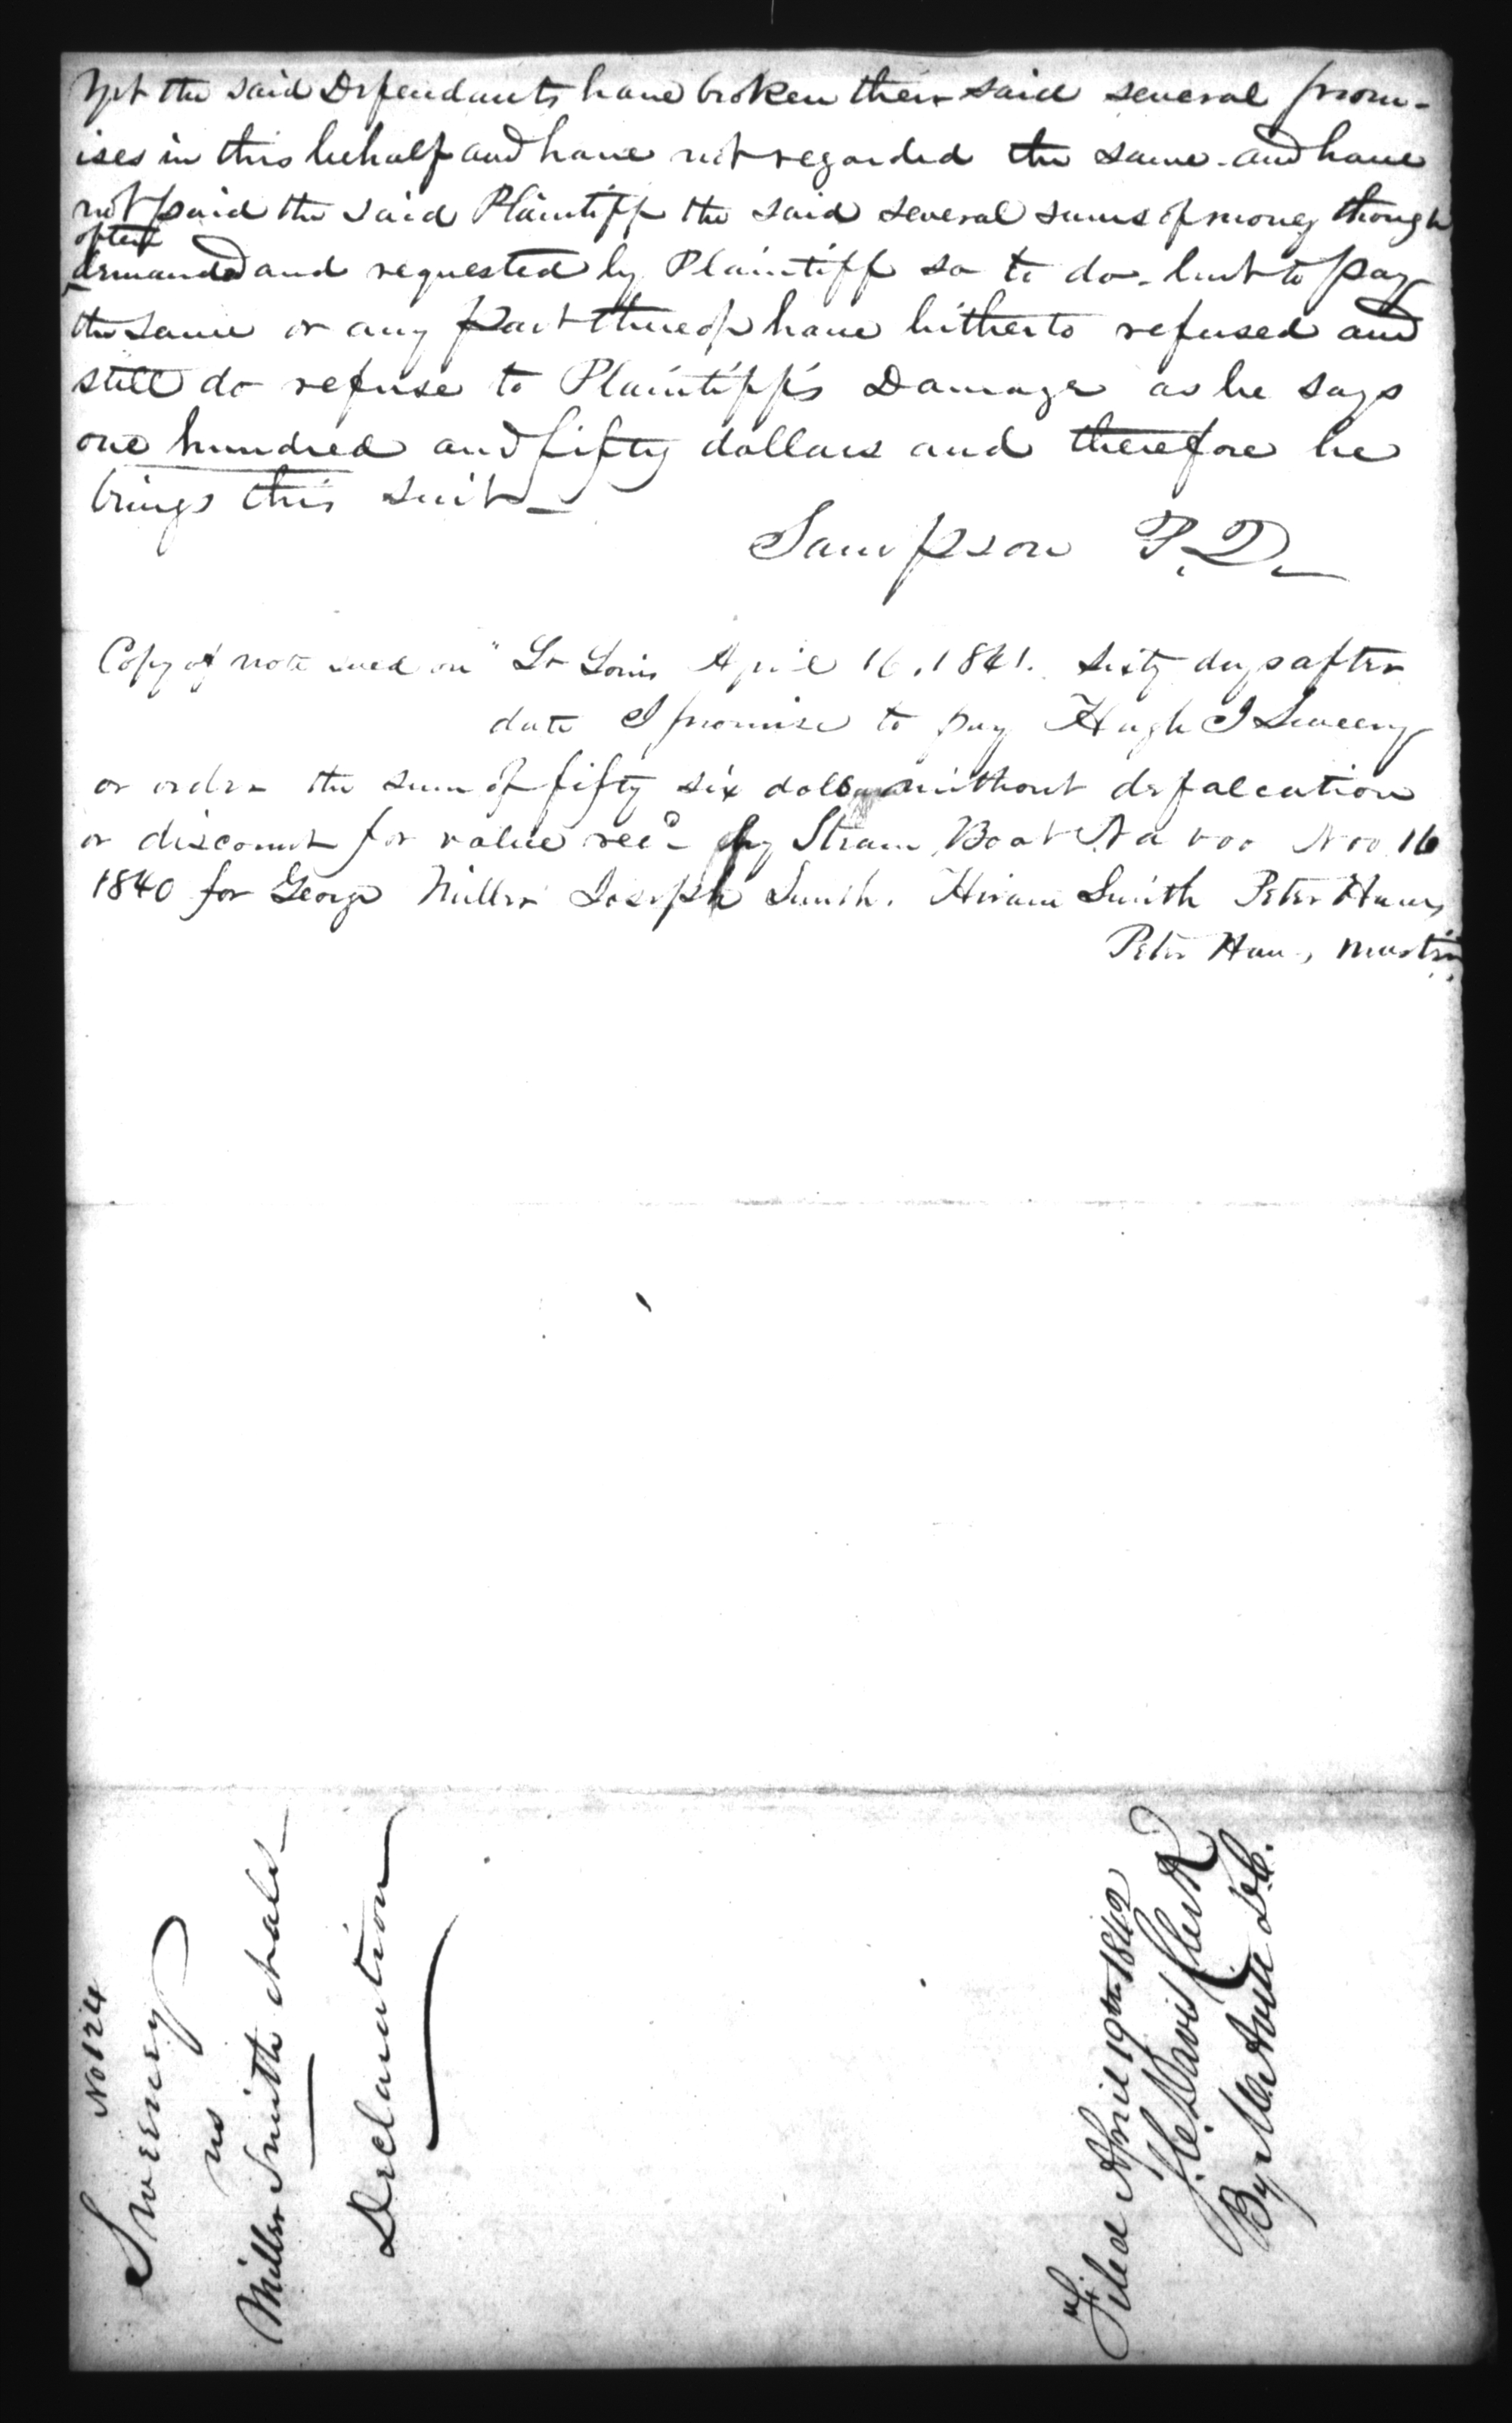 Yet the said Defendants have broken their said several prom-
ises in this behalf and have not regarded the same. and have
not paid the said Plaintiff the said several sums of money though
often
demanded and requested by Plaintiff so to do. but to pay
the same or any part thereof have hitherto refused and
still do refuse to Plaintiff's Damage as he says
one hundred and fifty dollars and therefore he
brings this suit—
Sampson P. D.
Copy of note sued on " St Louis April 16, 1841. Sixty days after
date I promise to pay Hugh I Sweeny
or order the sum of fifty six dollars without defalcation
or discount for value recd by Steam Boat Na voo Nov 16
1840 for George Miller Joseph Smith. Hiram Smith Peter Haws
Peter Haws, Master
No 124
Sweeney
vs
Miller Smith et als
Declaration
Filed April 19th 1842
J. C. Davis Clerk
By M. Avise D.C.